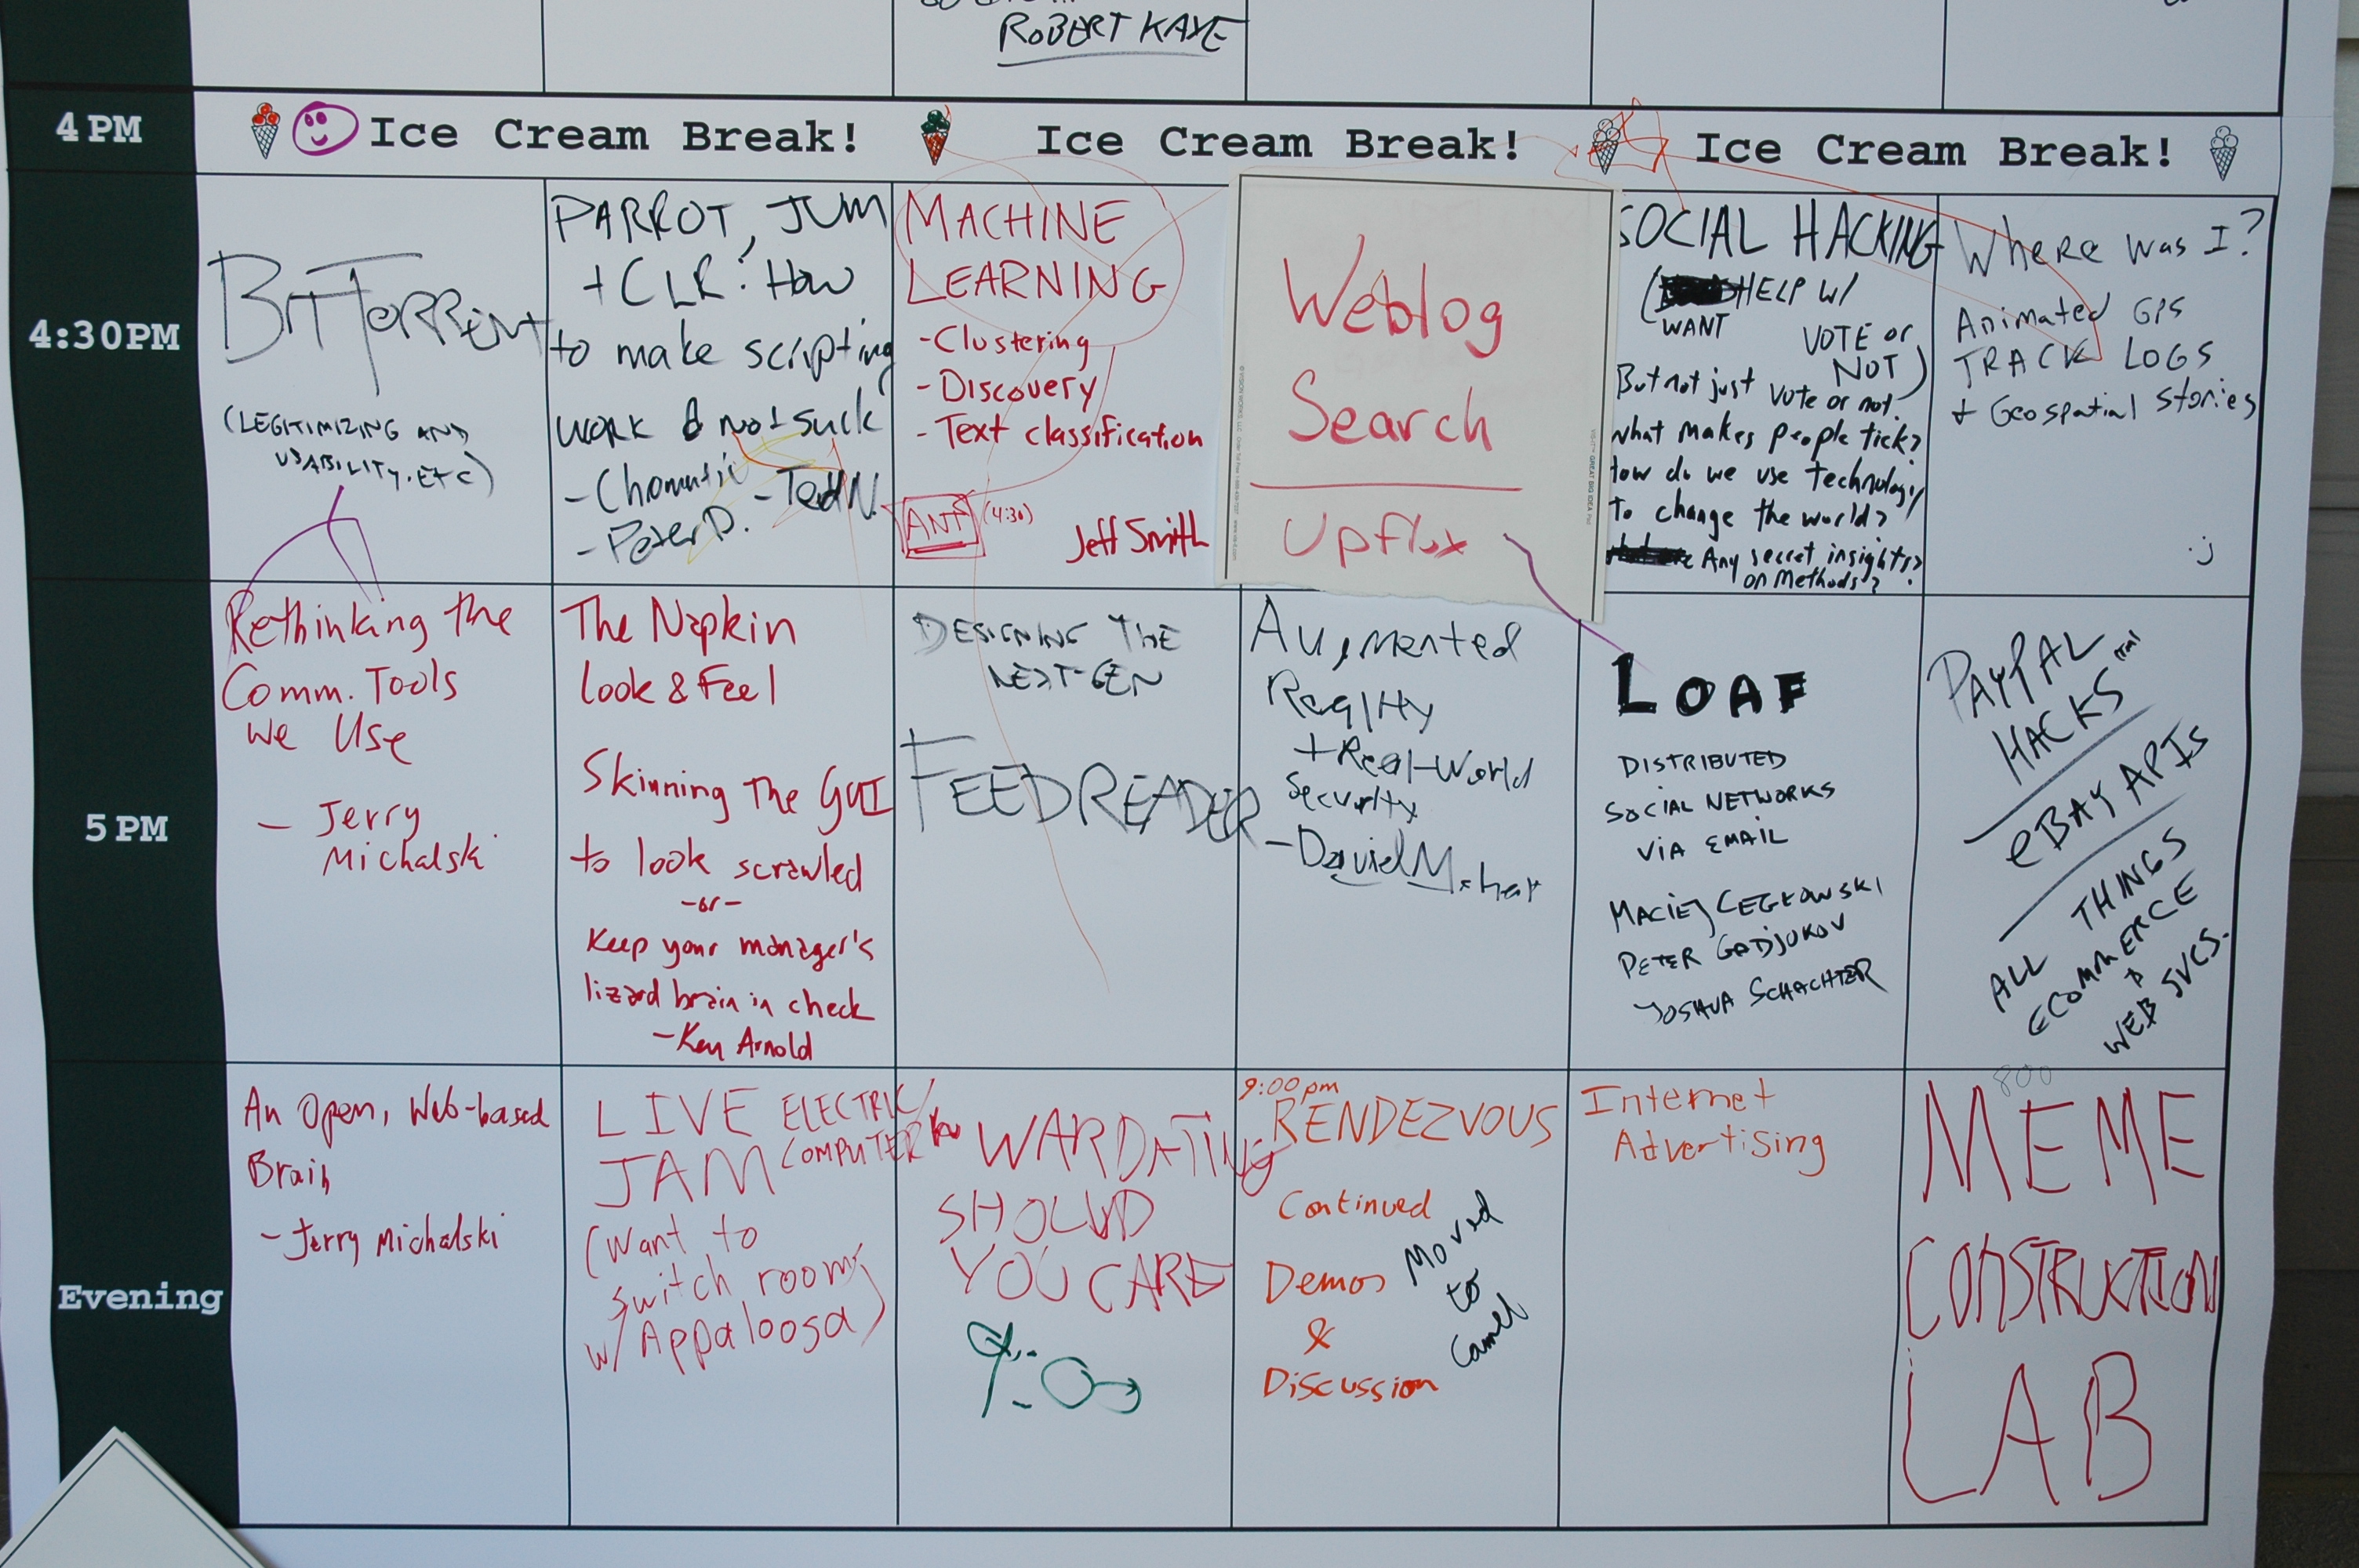 ROBERT KAYE
4 PM
Ice Cream Break!
Ice Cream Break!
Ice Cream Break!
4:30PM
BITTORRENT
(LEGITIMIZING AND
USABILITY. ETC)
PARROT, JVM
+ CLR: How
to make scripting
work & not suck
- Chromatic
- Peter D. - Ted N.
MACHINE
LEARNING
- Clustering
- Discovery
- Text classification
ANT (4:30)
Jeff Smith
Weblog
Search
Upflux
SOCIAL HACKING
( HELP W/
WANT
VOTE or
NOT )
But not just vote or not.
what makes people tick?
How do we use technology
To change the world?
Any secret insights?
on methods?
Where was I?
Animated GPS
TRACK LOGS
+ Geospatial stories
:j
5 PM
Rethinking the
Comm. Tools
we Use
- Jerry
Michalski
The Napkin
Look & Feel
Skinning the GUI
to look scrawled
-or-
Keep your manager's
lizard brain in check
- Ken Arnold
DESIGNING THE
NEXT-GEN
FEEDREADER
Augmented
Reality
+ Real-World
Security
- Daniel M.
LOAF
DISTRIBUTED
SOCIAL NETWORKS
VIA EMAIL
MACIEJ CEGŁOWSKI
PETER GADJOKOV
JOSHUA SCHACHTER
PAYPAL
HACKS
eBAY APIs
ALL THINGS
ECOMMERCE
+
WEB SVCS.
Evening
An Open, Web-based
Brain
- Jerry Michalski
LIVE ELECTRIC/
JAM COMPUTER
(Want to
switch rooms
w/ Appaloosa)
WARDATING
SHOULD
YOU CARE
9:00pm
RENDEZVOUS
Continued
Demos
&
Discussion
Moved
to
Camel
Internet
Advertising
800
MEME
CONSTRUCTION
LAB